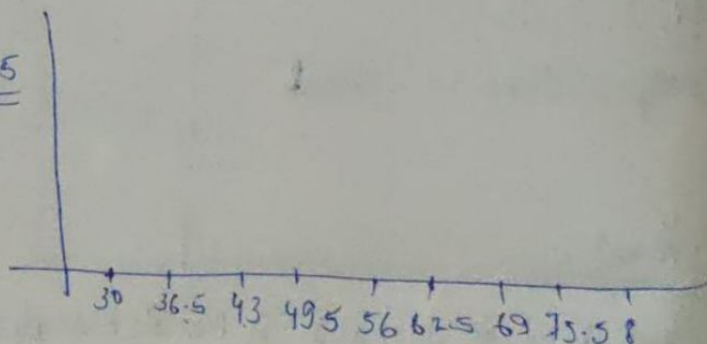 5
30 36.5 43 49.5 56 62.5 69 75.5 8